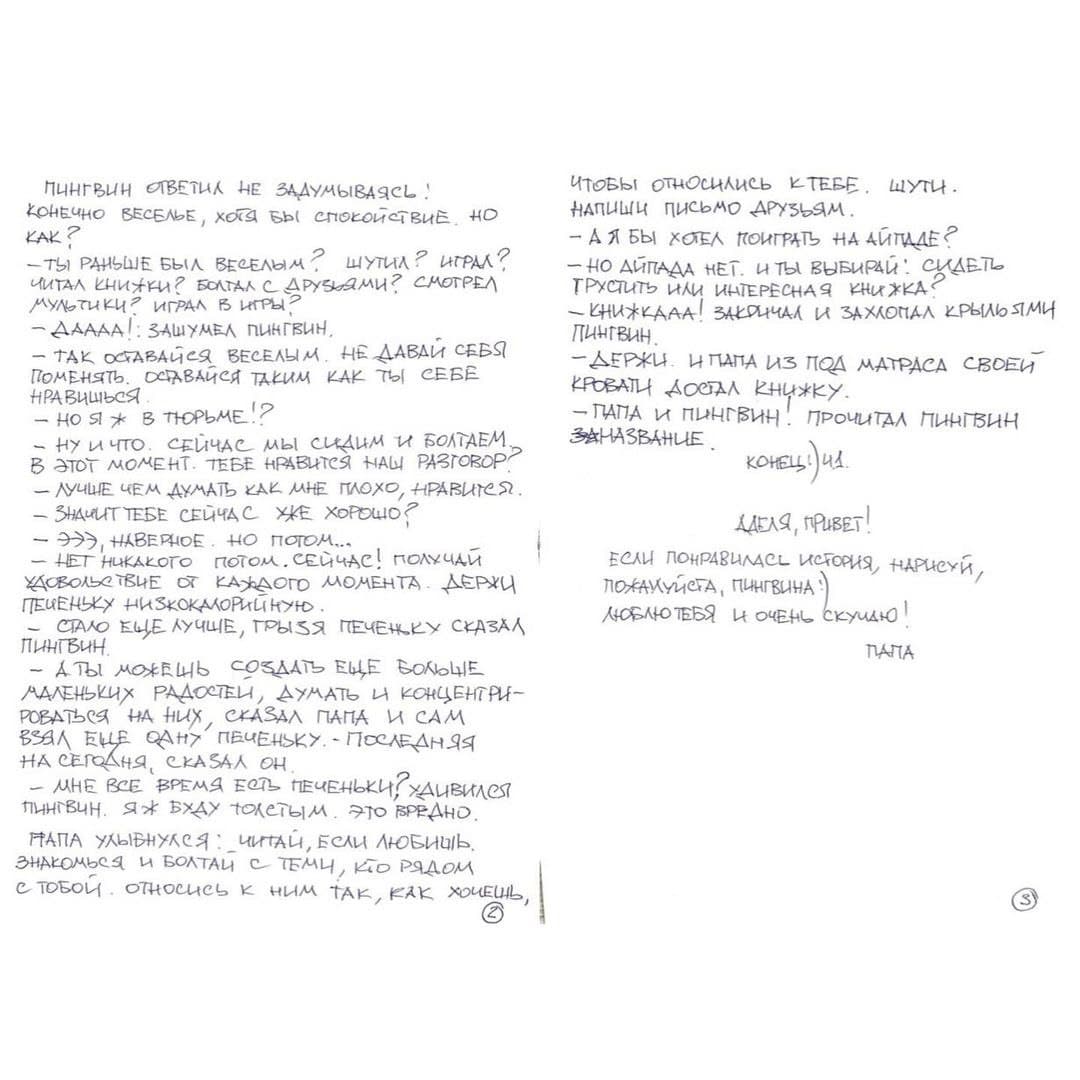 ПИНГВИН ОТВЕТИЛ НЕ ЗАДУМЫВАЯСЬ!
КОНЕЧНО ВЕСЕЛЬЕ, ХОТЯ БЫ СПОКОЙСТВИЕ. НО
КАК?
– ТЫ РАНЬШЕ БЫЛ ВЕСЕЛЫМ? ШУТИЛ? ИГРАЛ?
ЧИТАЛ КНИЖКИ? БОЛТАЛ С ДРУЗЬЯМИ? СМОТРЕЛ
МУЛЬТИКИ? ИГРАЛ В ИГРЫ?
– ДАААА!: ЗАШУМЕЛ ПИНГВИН.
– ТАК ОСТАВАЙСЯ ВЕСЕЛЫМ. НЕ ДАВАЙ СЕБЯ
ПОМЕНЯТЬ. ОСТАВАЙСЯ ТАКИМ КАК ТЫ СЕБЕ
НРАВИШЬСЯ.
– НО Я Ж В ТЮРЬМЕ!?
– НУ И ЧТО. СЕЙЧАС МЫ СИДИМ И БОЛТАЕМ.
В ЭТОТ МОМЕНТ. ТЕБЕ НРАВИТСЯ НАШ РАЗГОВОР?
– ЛУЧШЕ ЧЕМ ДУМАТЬ КАК МНЕ ПЛОХО, НРАВИТСЯ.
– ЗНАЧИТ ТЕБЕ СЕЙЧАС УЖЕ ХОРОШО?
– ЭЭЭ, НАВЕРНОЕ. НО ПОТОМ...
– НЕТ НИКАКОГО ПОТОМ. СЕЙЧАС! ПОЛУЧАЙ
УДОВОЛЬСТВИЕ ОТ КАЖДОГО МОМЕНТА. ДЕРЖИ
ПЕЧЕНЬКУ НИЗКОКАЛОРИЙНУЮ.
– СТАЛО ЕЩЕ ЛУЧШЕ, ГРЫЗЯ ПЕЧЕНЬКУ СКАЗАЛ
ПИНГВИН.
– А ТЫ МОЖЕШЬ СОЗДАТЬ ЕЩЕ БОЛЬШЕ
МАЛЕНЬКИХ РАДОСТЕЙ, ДУМАТЬ И КОНЦЕНТРИ-
РОВАТЬСЯ НА НИХ, СКАЗАЛ ПАПА И САМ
ВЗЯЛ ЕЩЕ ОДНУ ПЕЧЕНЬКУ. - ПОСЛЕДНЯЯ
НА СЕГОДНЯ, СКАЗАЛ ОН.
– МНЕ ВСЕ ВРЕМЯ ЕСТЬ ПЕЧЕНЬКИ? УДИВИЛСЯ
ПИНГВИН. Я Ж БУДУ ТОЛСТЫМ. ЭТО ВРЕДНО.
ПАПА УЛЫБНУЛСЯ: ЧИТАЙ, ЕСЛИ ЛЮБИШЬ.
ЗНАКОМЬСЯ И БОЛТАЙ С ТЕМИ, КТО РЯДОМ
С ТОБОЙ. ОТНОСИСЬ К НИМ ТАК, КАК ХОЧЕШЬ,
2
ЧТОБЫ ОТНОСИЛИСЬ К ТЕБЕ. ШУТИ.
НАПИШИ ПИСЬМО ДРУЗЬЯМ.
– А Я БЫ ХОТЕЛ ПОИГРАТЬ НА АЙПАДЕ?
– НО АЙПАДА НЕТ. И ТЫ ВЫБИРАЙ: СИДЕТЬ
ГРУСТИТЬ ИЛИ ИНТЕРЕСНАЯ КНИЖКА?
– КНИЖКААА! ЗАКРИЧАЛ И ЗАХЛОПАЛ КРЫЛЬЯМИ
ПИНГВИН.
– ДЕРЖИ. И ПАПА ИЗ ПОД МАТРАСА СВОЕЙ
КРОВАТИ ДОСТАЛ КНИЖКУ.
– ПАПА И ПИНГВИН! ПРОЧИТАЛ ПИНГВИН
НАЗВАНИЕ.
КОНЕЦ:) Ч1.
АДЕЛЯ, ПРИВЕТ!
ЕСЛИ ПОНРАВИЛАСЬ ИСТОРИЯ, НАРИСУЙ,
ПОЖАЛУЙСТА, ПИНГВИНА:)
ЛЮБЛЮ ТЕБЯ И ОЧЕНЬ СКУЧАЮ!
ПАПА
3